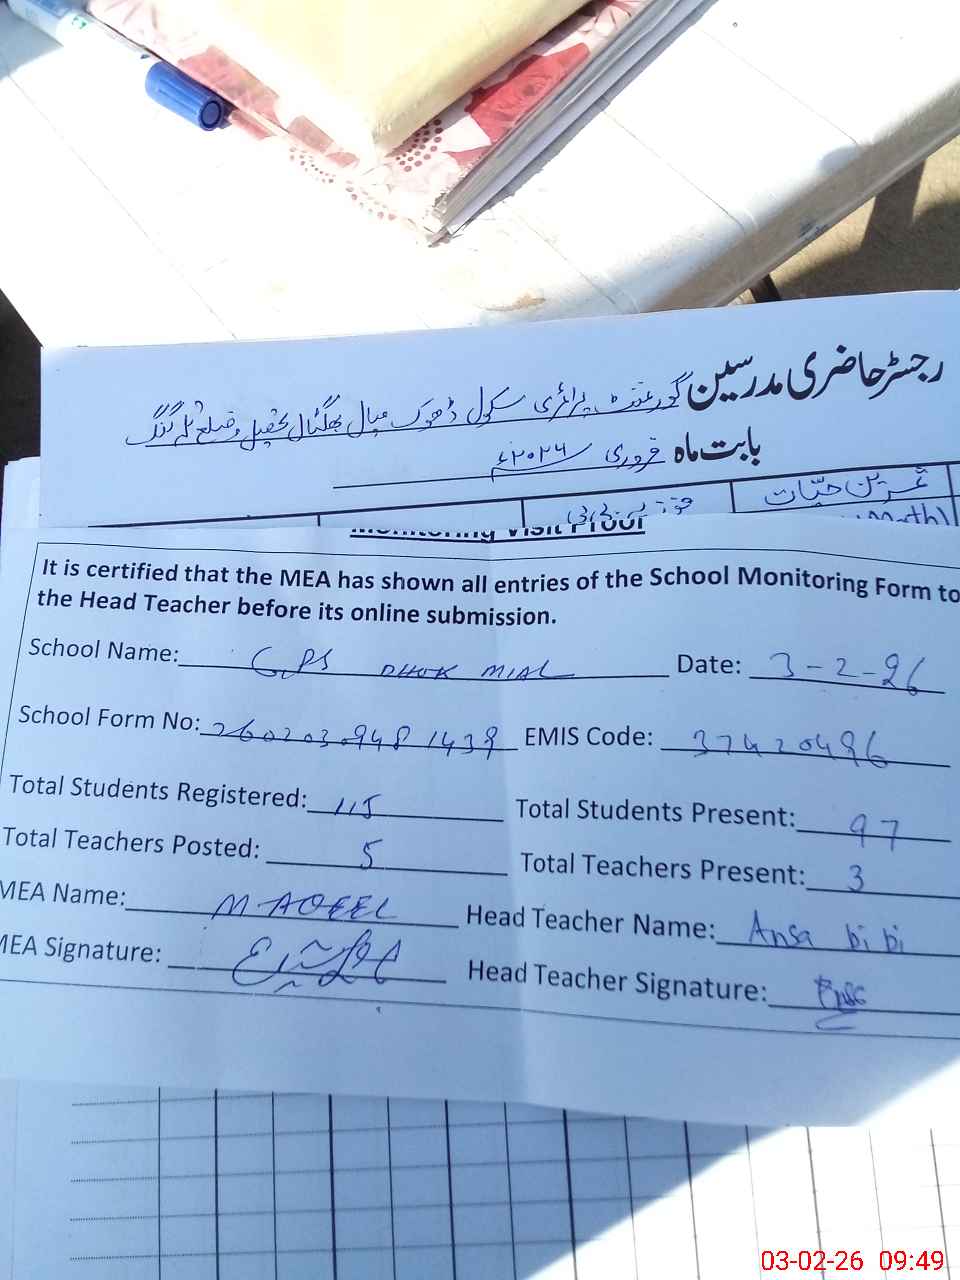 رجسٹر حاضری مدرسین گورنمنٹ پرائمری سکول ڈھوک میال بھگٹال تحصیل و ضلع تلہ گنگ
بابت ماہ فروری ۲۰۲۶ء
ثمرین حیات
(Math)
Monitoring Visit Proof
It is certified that the MEA has shown all entries of the School Monitoring Form to
the Head Teacher before its online submission.
School Name: GPS DHOK MIAL Date: 3-2-26
School Form No: 26020309481439 EMIS Code: 37420496
Total Students Registered: 115 Total Students Present: 97
Total Teachers Posted: 5 Total Teachers Present: 3
MEA Name: M AQEEL Head Teacher Name: Ansa bi bi
MEA Signature: Head Teacher Signature:
03-02-26 09:49